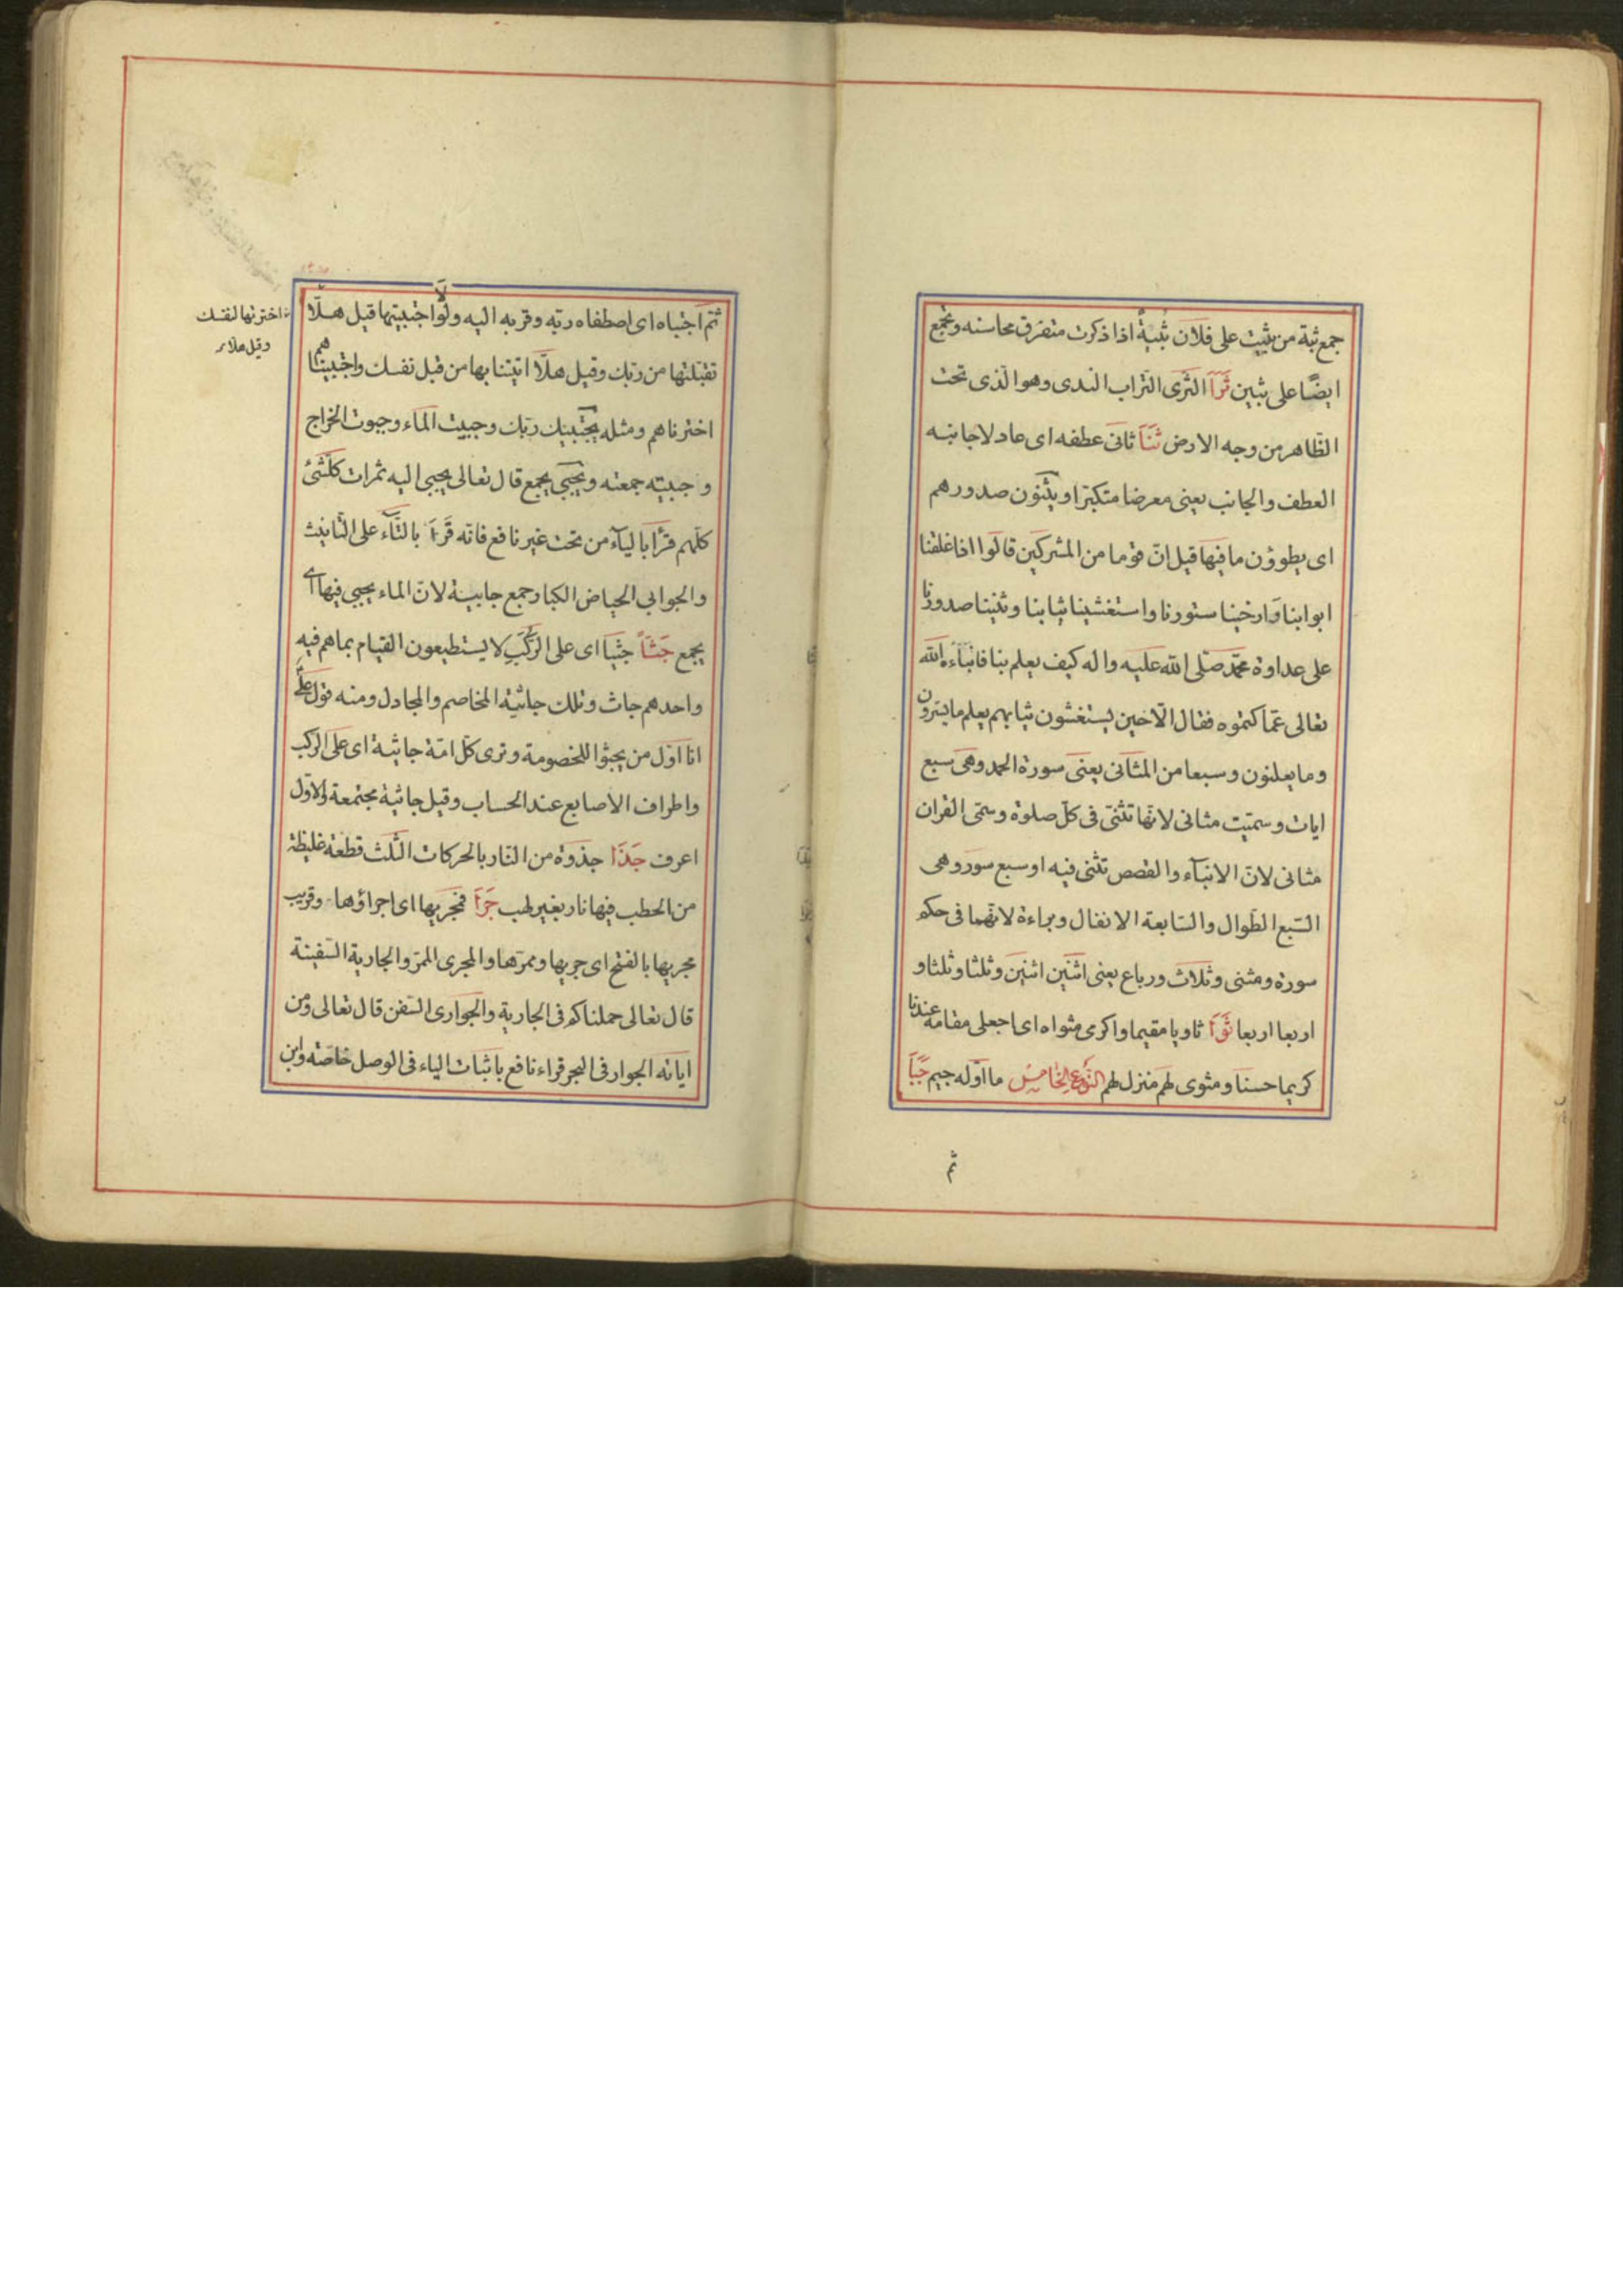 جمع ثبة من ثبيت على فلان ثبية اذا ذكرت متفرق محاسنه وتجمع
ايضا على ثبين ثرا الثرى التراب الندى وهو الذى تحت
الظاهر من وجه الارض ثنا ثانى عطفه اى عادلا جانبه
العطف والجانب يعنى معرضا متكبرا ويثنون صدورهم
اى يطوون ما فيها قيل ان قوما من المشركين قالوا اذا غلقنا
ابوابنا وارخينا ستورنا واستغشينا ثيابنا وثنينا صدورنا
على عداوة محمد صلى الله عليه واله كيف يعلم بنا فانباءه الله
تعالى عما كتموه فقال الا حين يستغشون ثيابهم يعلم ما يسرون
وما يعلنون وسبعا من المثانى يعنى سورة الحمد وهى سبع
ايات وسميت مثانى لانها تثنى فى كل صلوة وسمى القران
مثانى لان الانبآء والقصص تثنى فيه او سبع سور وهى
السبع الطوال والسابعة الانفال وبراءة لانهما فى حكم
سورة ومثنى وثلاث ورباع يعنى اثنين اثنين وثلثا وثلثا و
اربعا اربعا ثوا ثاويا مقيما واكرمى مثواه اى اجعلى مقامه عندنا
كريما حسنا ومثوى لهم منزل لهم النوع الخامس ما اوله جيم جبا
ثم
ثم اجتباه اى اصطفاه ربه وقربه اليه ولولا اجتبيتها قيل هلا
اخترتها لنفسك
وقيل هلا
تقبلتها من ربك وقيل هلا اتيتنا بها من قبل نفسك واجتبيناهم
اخترناهم ومثله يجتبيك ربك وجبيت الماء وجبوت الخراج
وجبيته جمعته ويجبى يجمع قال تعالى يجبى اليه ثمرات كلشئ
كلهم قرأ باليآء من تحت غير نافع فانه قرا بالتآء على التانيث
والجوابى الحياض الكبار جمع جابية لان الماء يجبى فيها اى
يجمع جثا جثيا اى على الركب لا يستطيعون القيام بما هم فيه
واحدهم جاث وتلك جاثية المخاصم والمجادل ومنه قول على
انا اول من يجثوا للخصومة وترى كل امة جاثية اى على الركب
واطراف الاصابع عند الحساب وقيل جاثية مجتمعة والاول
اعرف جذا جذوة من النار بالحركات الثلث قطعة غليظة
من الحطب فيها نار بغير لهب جرا فمجريها اى اجراؤها وقريب
مجريها بالفتح اى جريها وممرها والمجرى الممر والجارية السفينة
قال تعالى حملناكم فى الجارية والجوارى السفن قال تعالى ومن
اياته الجوار فى البحر قراء نافع باثبات الياء فى الوصل خاصة وابن